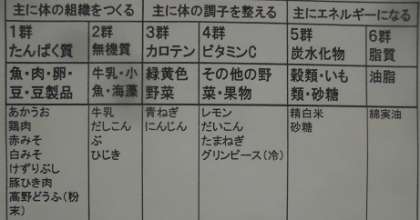 主に体の組織をつくる
主に体の調子を整える
主にエネルギーになる
1群
たんぱく質
2群
無機質
3群
カロテン
4群
ビタミンC
5群
炭水化物
6群
脂質
魚・肉・卵・
豆・豆製品
牛乳・小
魚・海藻
緑黄色
野菜
その他の野
菜・果物
穀類・いも
類・砂糖
油脂
あかうお
鶏肉
赤みそ
白みそ
けずりぶし
豚ひき肉
高野どうふ(粉
末)
牛乳
だしこん
ぶ
ひじき
青ねぎ
にんじん
レモン
だいこん
たまねぎ
グリンピース(冷)
精白米
砂糖
綿実油